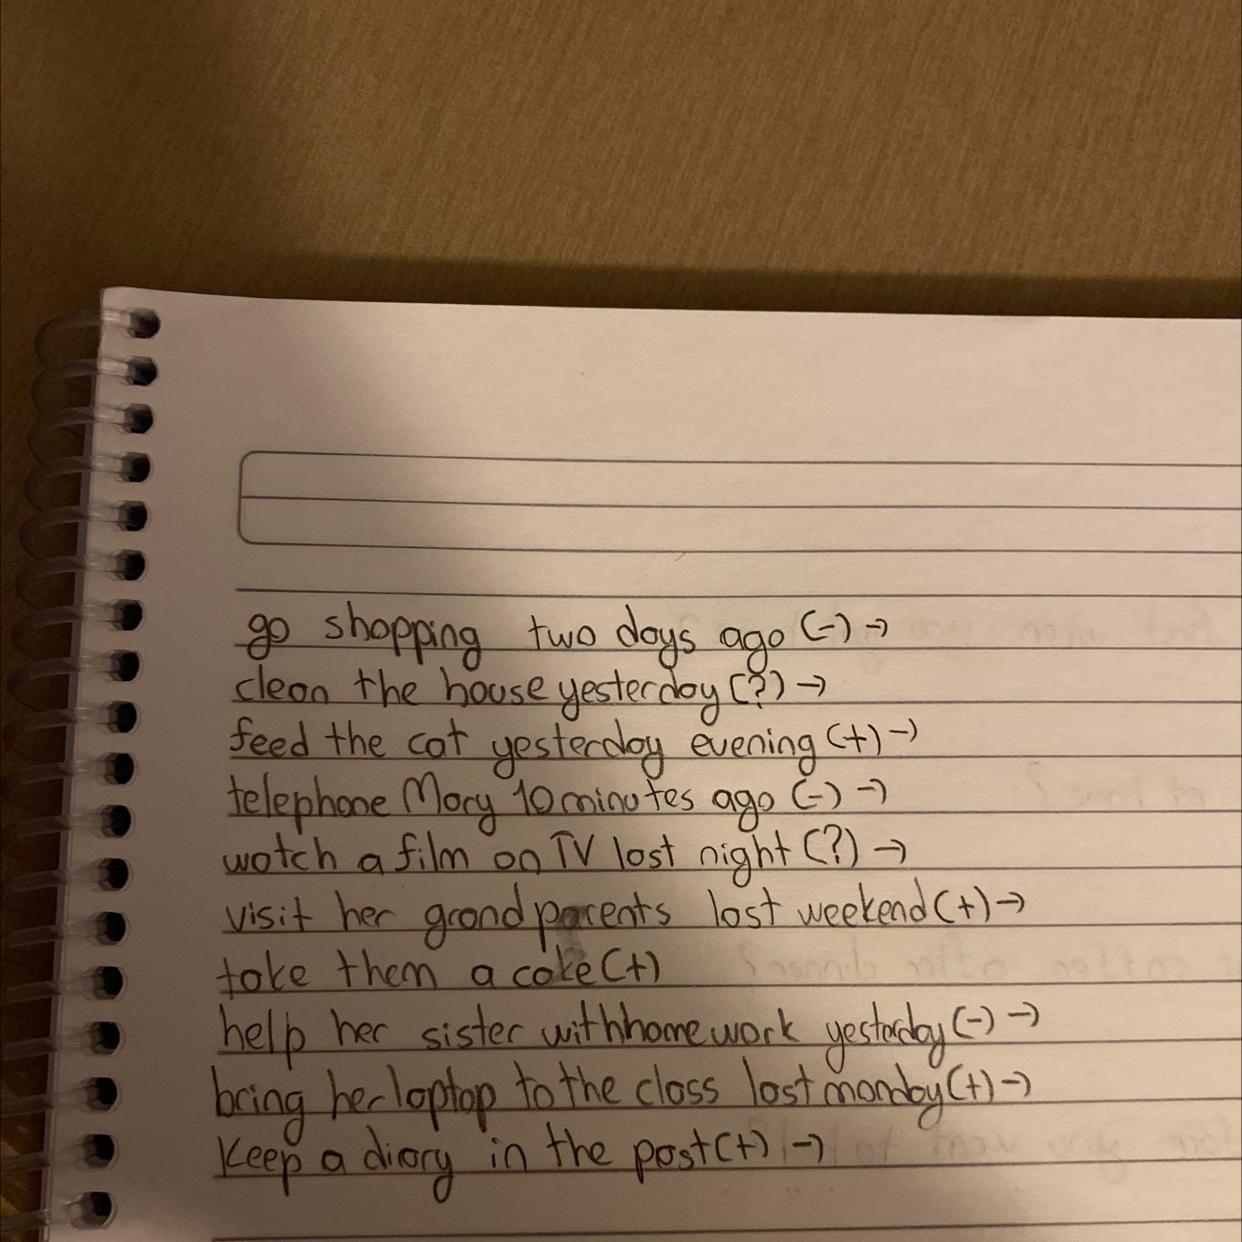 go shopping two days ago (-) →
clean the house yesterday (?) →
feed the cat yesterday evening (+) →
telephone Mary 10 minutes ago (-) →
watch a film on TV last night (?) →
visit her grandparents last weekend (+) →
take them a cake (+)
help her sister with homework yesterday (-) →
bring her laptop to the class last monday (+) →
Keep a diary in the past (+) →